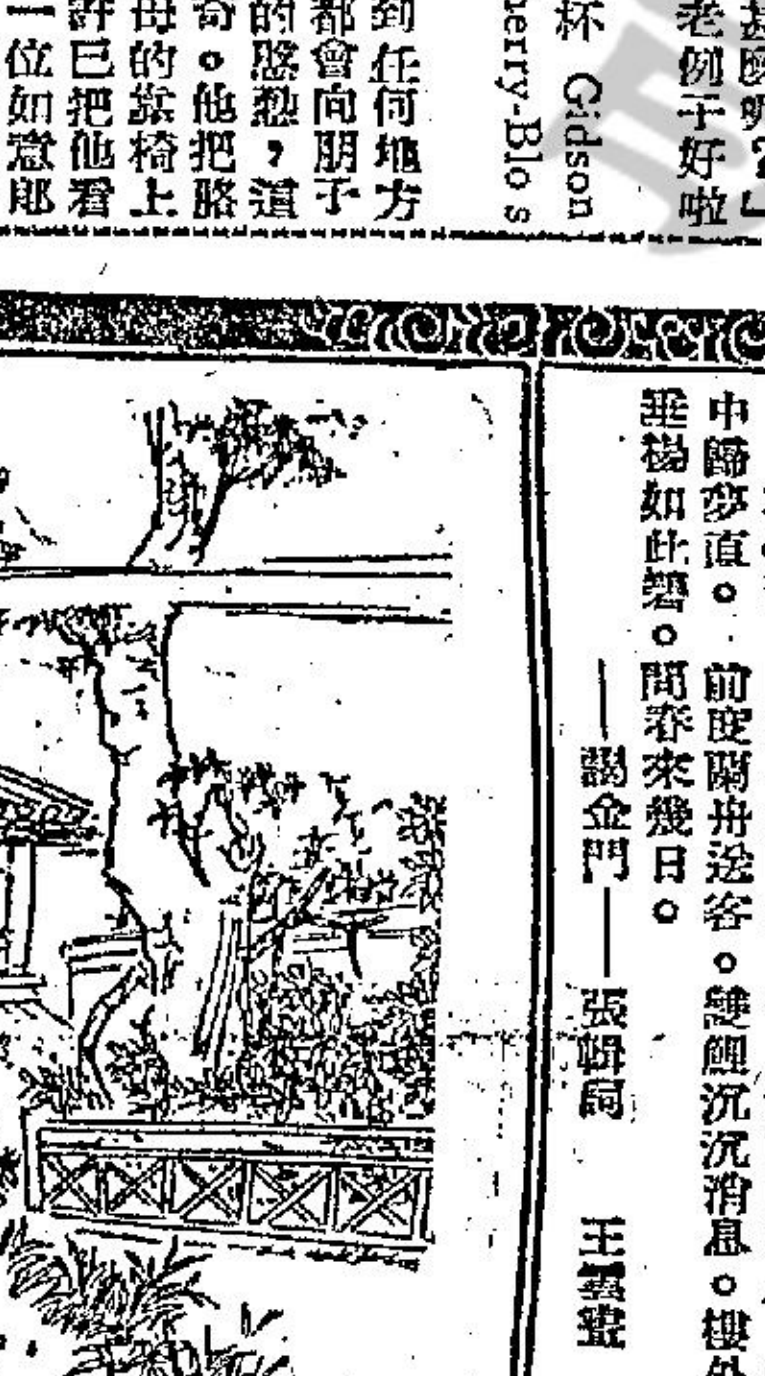 甚麼呢?」
老例子好啦
杯 Gidson
herry-Blos
到任何地方
都會向朋子
的慇懃,道
奇。他把胳
母的靠椅上
許已把他看
一位如意郎
中歸夢直。 前度蘭舟送客。雙鯉沉沉消息。樓外
垂楊如此碧。問春來幾日。
——謁金門—— 張輯詞 王雲